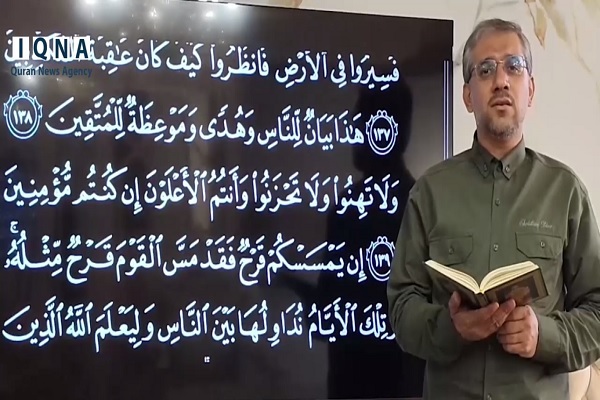 IQNA
Quran News Agency
فَسِيرُوا۟ فِى ٱلْأَرْضِ فَٱنظُرُوا۟ كَيْفَ كَانَ عَـٰقِبَةُ
﴿١٣٧﴾ هَـٰذَا بَيَانٌ لِّلنَّاسِ وَهُدًى وَمَوْعِظَةٌ لِّلْمُتَّقِينَ ﴿١٣٨﴾
وَلَا تَهِنُوا۟ وَلَا تَحْزَنُوا۟ وَأَنتُمُ ٱلْأَعْلَوْنَ إِن كُنتُم مُّؤْمِنِينَ
﴿١٣٩﴾ إِن يَمْسَسْكُمْ قَرْحٌ فَقَدْ مَسَّ ٱلْقَوْمَ قَرْحٌ مِّثْلُهُۥ ۚ
وَتِلْكَ ٱلْأَيَّامُ نُدَاوِلُهَا بَيْنَ ٱلنَّاسِ وَلِيَعْلَمَ ٱللَّهُ ٱلَّذِينَ